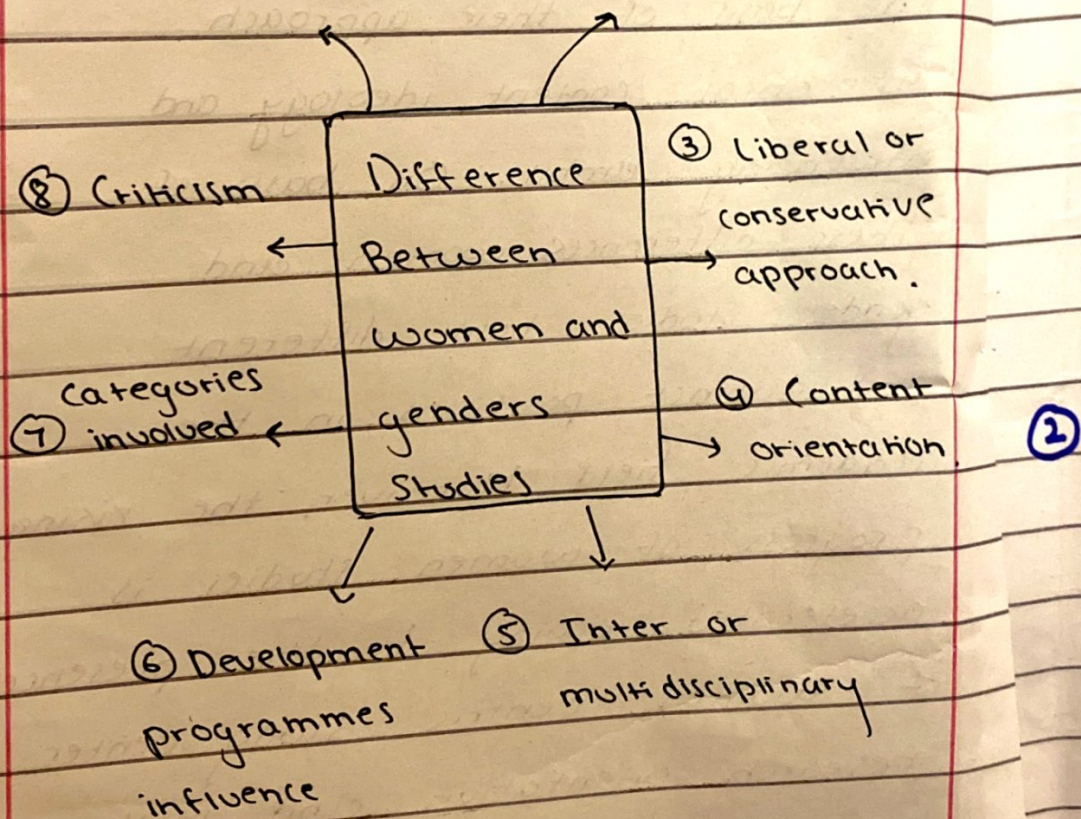 Difference
Between
women and
genders
Studies
③ Liberal or
conservative
approach.
④ Content
orientation
②
⑤ Inter or
multi disciplinary
⑥ Development
programmes
influence
Categories
⑦ involved
⑧ Criticism